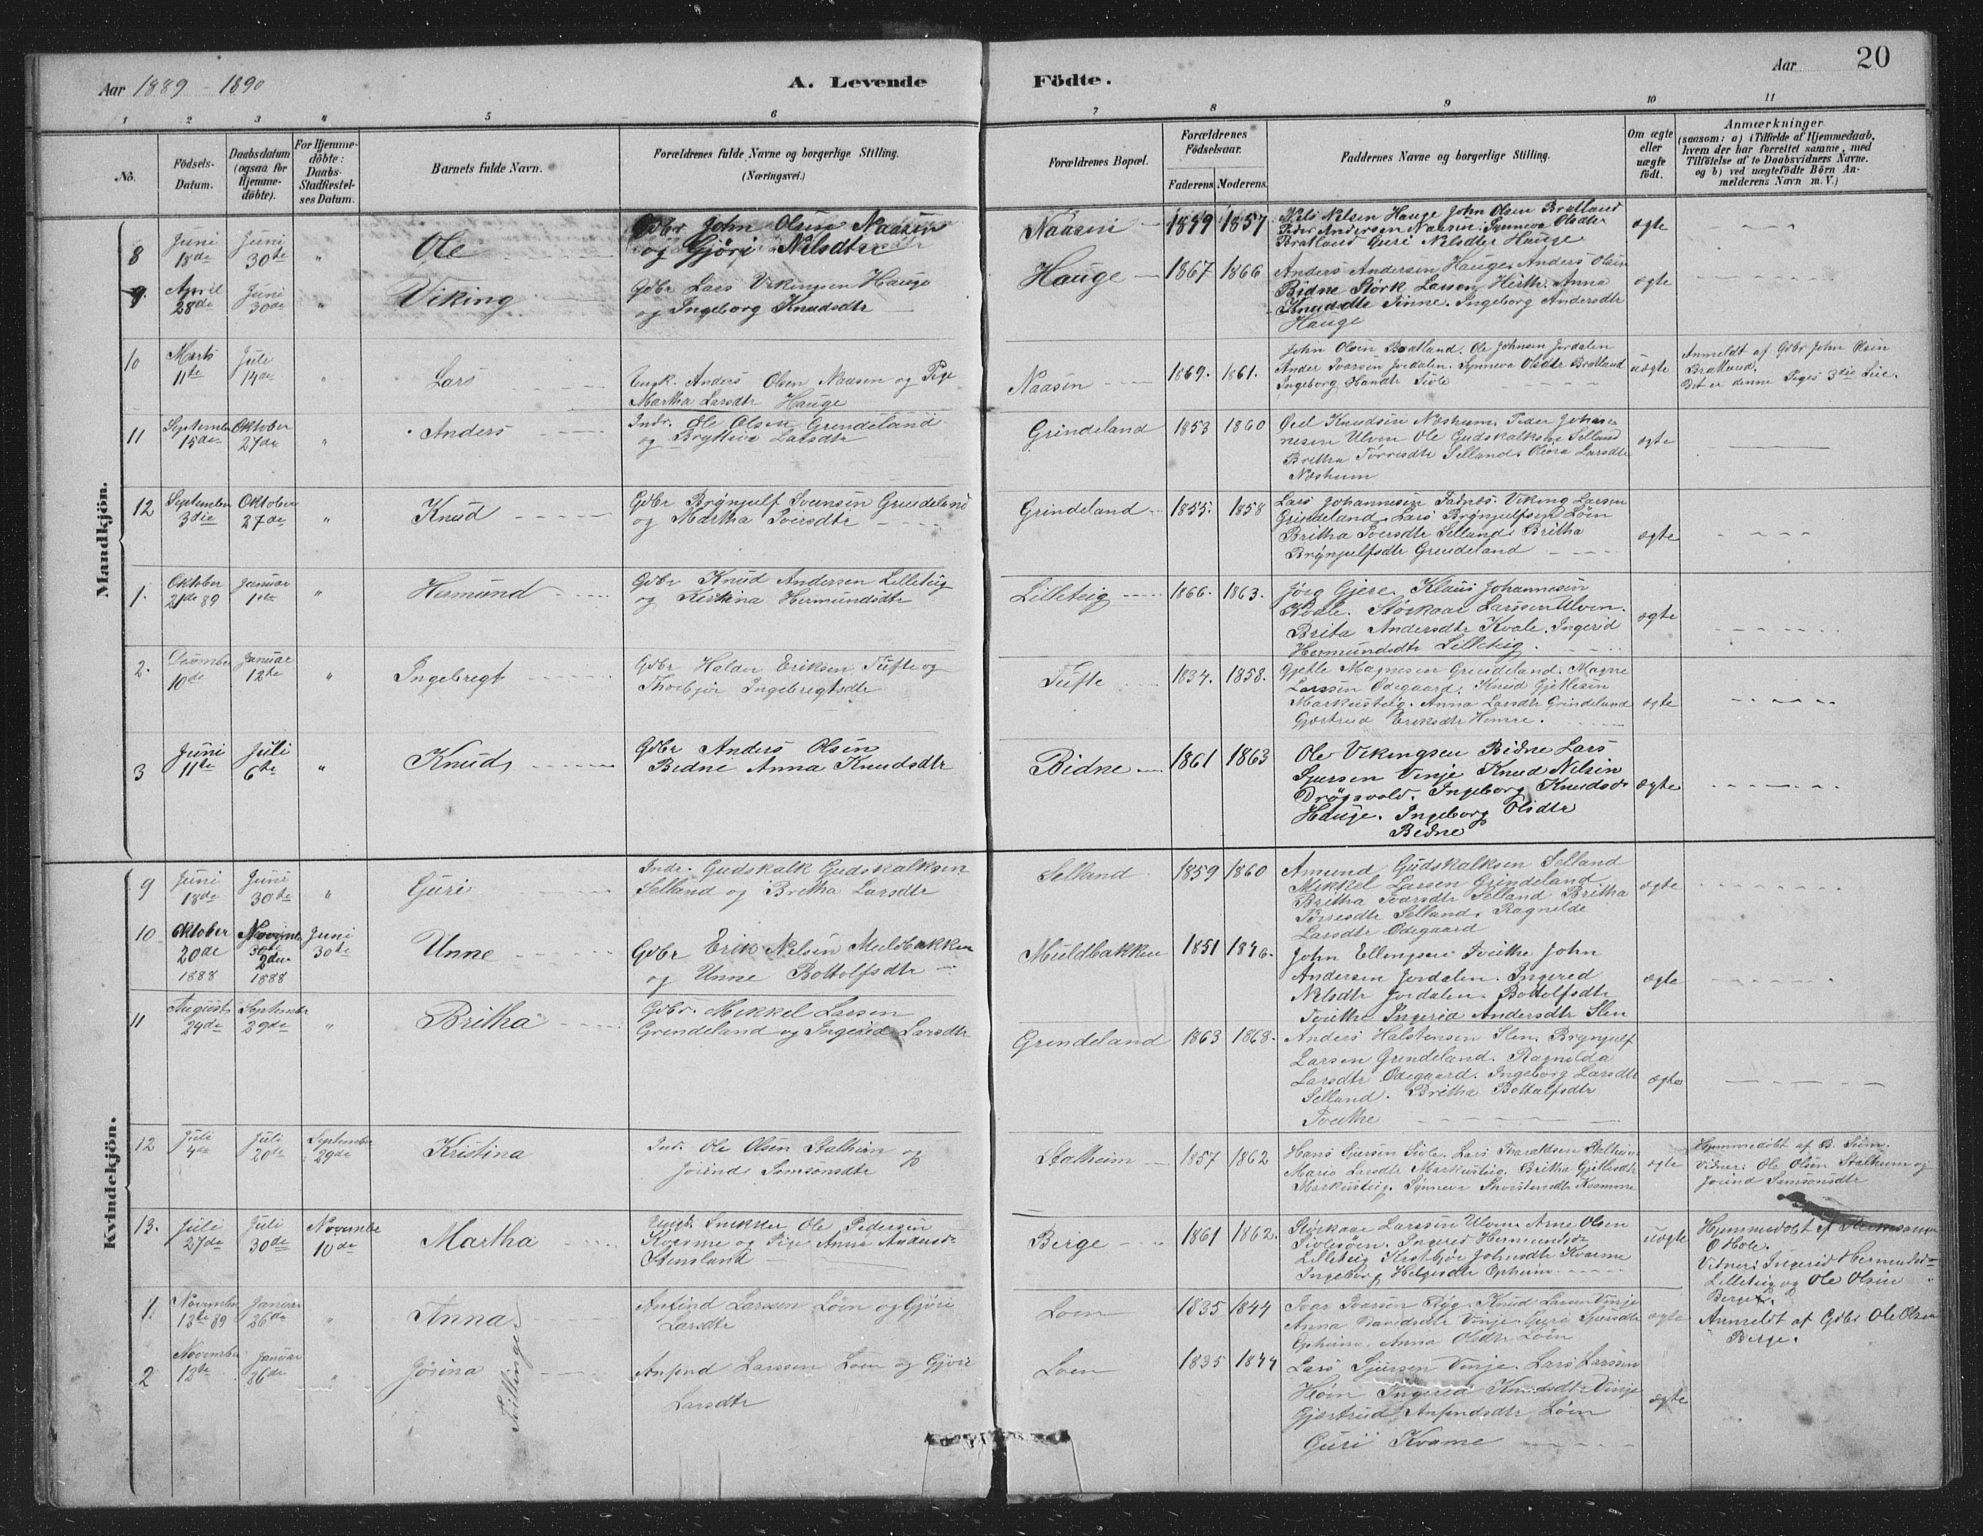 Aar 1889 - 1890
A. Levende
Födte.
Aar
20
1
2
3
4
5
6
7
8
9
10
11
No.
Födsels-
Datum.
Daabsdatum
(ogsaa for
Hjemme-
döbte).
For Hjemme-
döbte:
Daabs-
Stadfæstel-
ses Datum.
Barnets fulde Navn.
Forældrenes fulde Navne og borgerlige Stilling.
(Næringsvei.)
Forældrenes Bopæl.
Forældrenes
Födselsaar.
Faderens Moderens.
Faddernes Navne og borgerlige Stilling.
Om ægte
eller
uægte
födt.
Anmærkninger
(saasom: a) i Tilfælde af Hjemmedaab,
hvem der har forrettet samme, med
Tilföielse af to Daabsvidners Navne.
og b) ved uægtefödte Börn An-
melderens Navn m. V.)
Mandkjön.
8
Juni
18de
Juni
30te
"
Ole
Gdbr John Olsen Naasen
og Gjöri Nilsdtr
Naasen
1857
Nils Nilsen Hauge John Olsen Bratland
Peder Andersen Naasen. Synneva Olsdtr
Bratland Guri Nilsdtr Hauge
ægte
9.
April
28de
Juni
30de
"
Viking
Gdbr Lars Vikingsen Hauge
og Ingeborg Knudsdtr
Hauge
1867
1866
Anders Andersen Hauge. Anders Olsen
Bidne Störk Larsen Hirth. Anna
Knudsdtr Finne. Ingeborg Andersdtr
Hauge
ægte
10
Marts
11te
Juli
14de
"
Lars
Ungk. Anders Olsen Naasen og Pige
Martha Larsdtr Hauge
Naasen
1869.
1861.
John Olsen Bratland. Ole Johnsen Jordalen
Anders Ivarsen Jordalen. Synneva Olsdtr Bratland
Ingeborg
uægte
Anmeldt af Gdbr John Olsen
Bratland.
Det er denne Piges 3die Leie.
11
September
15de
Oktober
27de
"
Anders
Indr. Ole Olsen Grindeland
og Brytteva Larsdtr
Grindeland
1853
1860
Knudsen Næshum. Peder Johan-
nesen Ulven Ole Gudskalksen Selland
Britha Torresdtr Selland. Olina Larsdtr
Næshum
ægte
12
September
3die
Oktober
27de
"
Knud
Gdbr Brynjulf Svensen Grindeland
og Martha Iversdtr
Grindeland
1855.
1858
Lars Johannesen Fadnes. Viking Larsen
Grindeland. Lars Brynjulfsen Löen
Britha Iversdtr Selland. Britha
Brynjulfsdtr Grindeland
ægte
1.
Oktober
21de 89
Januar
1ste
"
Hermund
Gdbr Knud Andersen Lilleteig
og Kristina Hermundsdtr
Lilleteig
1866.
1863.
Jörg Gjere. Klaus Johannesen
Kvale. Störkaar Larssen Ulven.
Brita Andersdtr Kvale. Ingerid
Hermundsdtr Lilleteig.
ægte
2.
December
10de
Januar
12te
"
Ingebregt
Gdbr Haldor Eriksen Tufte og
Thorbjör Ingebregtsdtr
Tufte
1834.
1858.
Gjetle Magnesen Grindeland. Magne
Larssen Ödegaard. Knud Gjetlesen
Markusteig. Anna Larsdtr Grindeland
Gjertrud Eriksdtr Himre.
ægte
3
Juni
11te
Juli
6te
"
Knud
Gdbr Anders Olsen
Bidne Anna Knudsdtr
Bidne
1861
1863
Ole Vikingsen Bidne Lars
Sjursen Vinje Knud Nilsen
Drögsvold. Ingeborg Knudsd.
Hauge. Ingeborg Olsdtr
Bidne
ægte
Kvindekjön.
9
Juni
18de
Juni
30te
"
Guri
Indr. Gudskalk Gudskalksen
Selland og Britha Larsdtr
Selland
1859
1860
Amund Gudskalksen Selland
Mikkel Larsen Grindeland
Britha Iversdtr Selland Britha
Torresdtr Selland. Ragnilde
Larsdtr Ödegaard
ægte
10
Oktober
20de
1888
2den
1888
Juni
30te
Unne
Gdbr Erik Nilsen Muldbakken
og Unne Bottolfsdtr
Muldbakken
1851
1846.
John Ellingsen Tveithe John
Andersen Jordalen. Ingerid
Nilsdtr Jordalen. Bottolfsdtr
Tveithe Ingerid Andersdtr Slen
ægte
11
August
24de
September
29de
"
Britha
Gdbr. Mikkel Larsen
Grindeland og Ingerid Larsdtr
Grindeland
1863
1868.
Anders Halstensen Slen. Brynjulf
Larsen Grindeland. Ragnilda
Larsdtr Ödegaard. Ingeborg Larsdtr
Selland. Britha Bottolfsdtr
Tveithe
ægte
12
Juli
4de
Juli
20de
September
29de
Kristina
Ind. Ole Olsen Stalheim og
Jorind Samsonsdtr
Stalheim
1857
1862
Hans Sjursen Tvile. Lars Stalheim
Mario Larsdtr Markusteig. Britha Gjetlesdtr
Markusteig. Synneva Thorstensdtr Kvamme
ægte
Hjemmedöbt af B.
Vidner: Ole Olsen Stalheim og
Jorind Samsonsdtr
13.
Juli
27de
Juli
30de
November
10de
Martha
Ungk. Snikker Ole Pedersen
Kvarme og Pige Anna Andersd.
Stensland
Berge
1861
1862.
Störkaar Larssen Ulven. Arne Olsen
Ingerid Hermundsd.
Lilleteig Johnsdtr Kvarme
Ingeborg Helgesdtr Opheim
uægte
Hjemmedöbt af
O Hole.
Vidner: Ingerid Hermundsd.
Lilleteig og Ole Olsen
Berge.
Anmeldt af Gdbr Ole Olsen
Berge.
1.
November
13te 89
Januar
26de
"
Anna
Tvillinger
Anfind Larssen Löen og Gjöri
Larsdtr
Loen
1835
1844
Ivar Ivarsen Knud Larsen Vinje
Anna Davidsdtr Vinje. Guri Sjursdtr
Opheim. Anna Olsdtr Löen
ægte
2
November
13te
Januar
26de
"
Jörina
Anfind Larssen Löen og Gjöri
Larsdtr
Loen
1835
1844
Lars Sjursen Vinje. Lars Larssen
Ingerid Knudsdtr Vinje
Gjertrud Anfindsdtr Löen
Guri Kvame
ægte